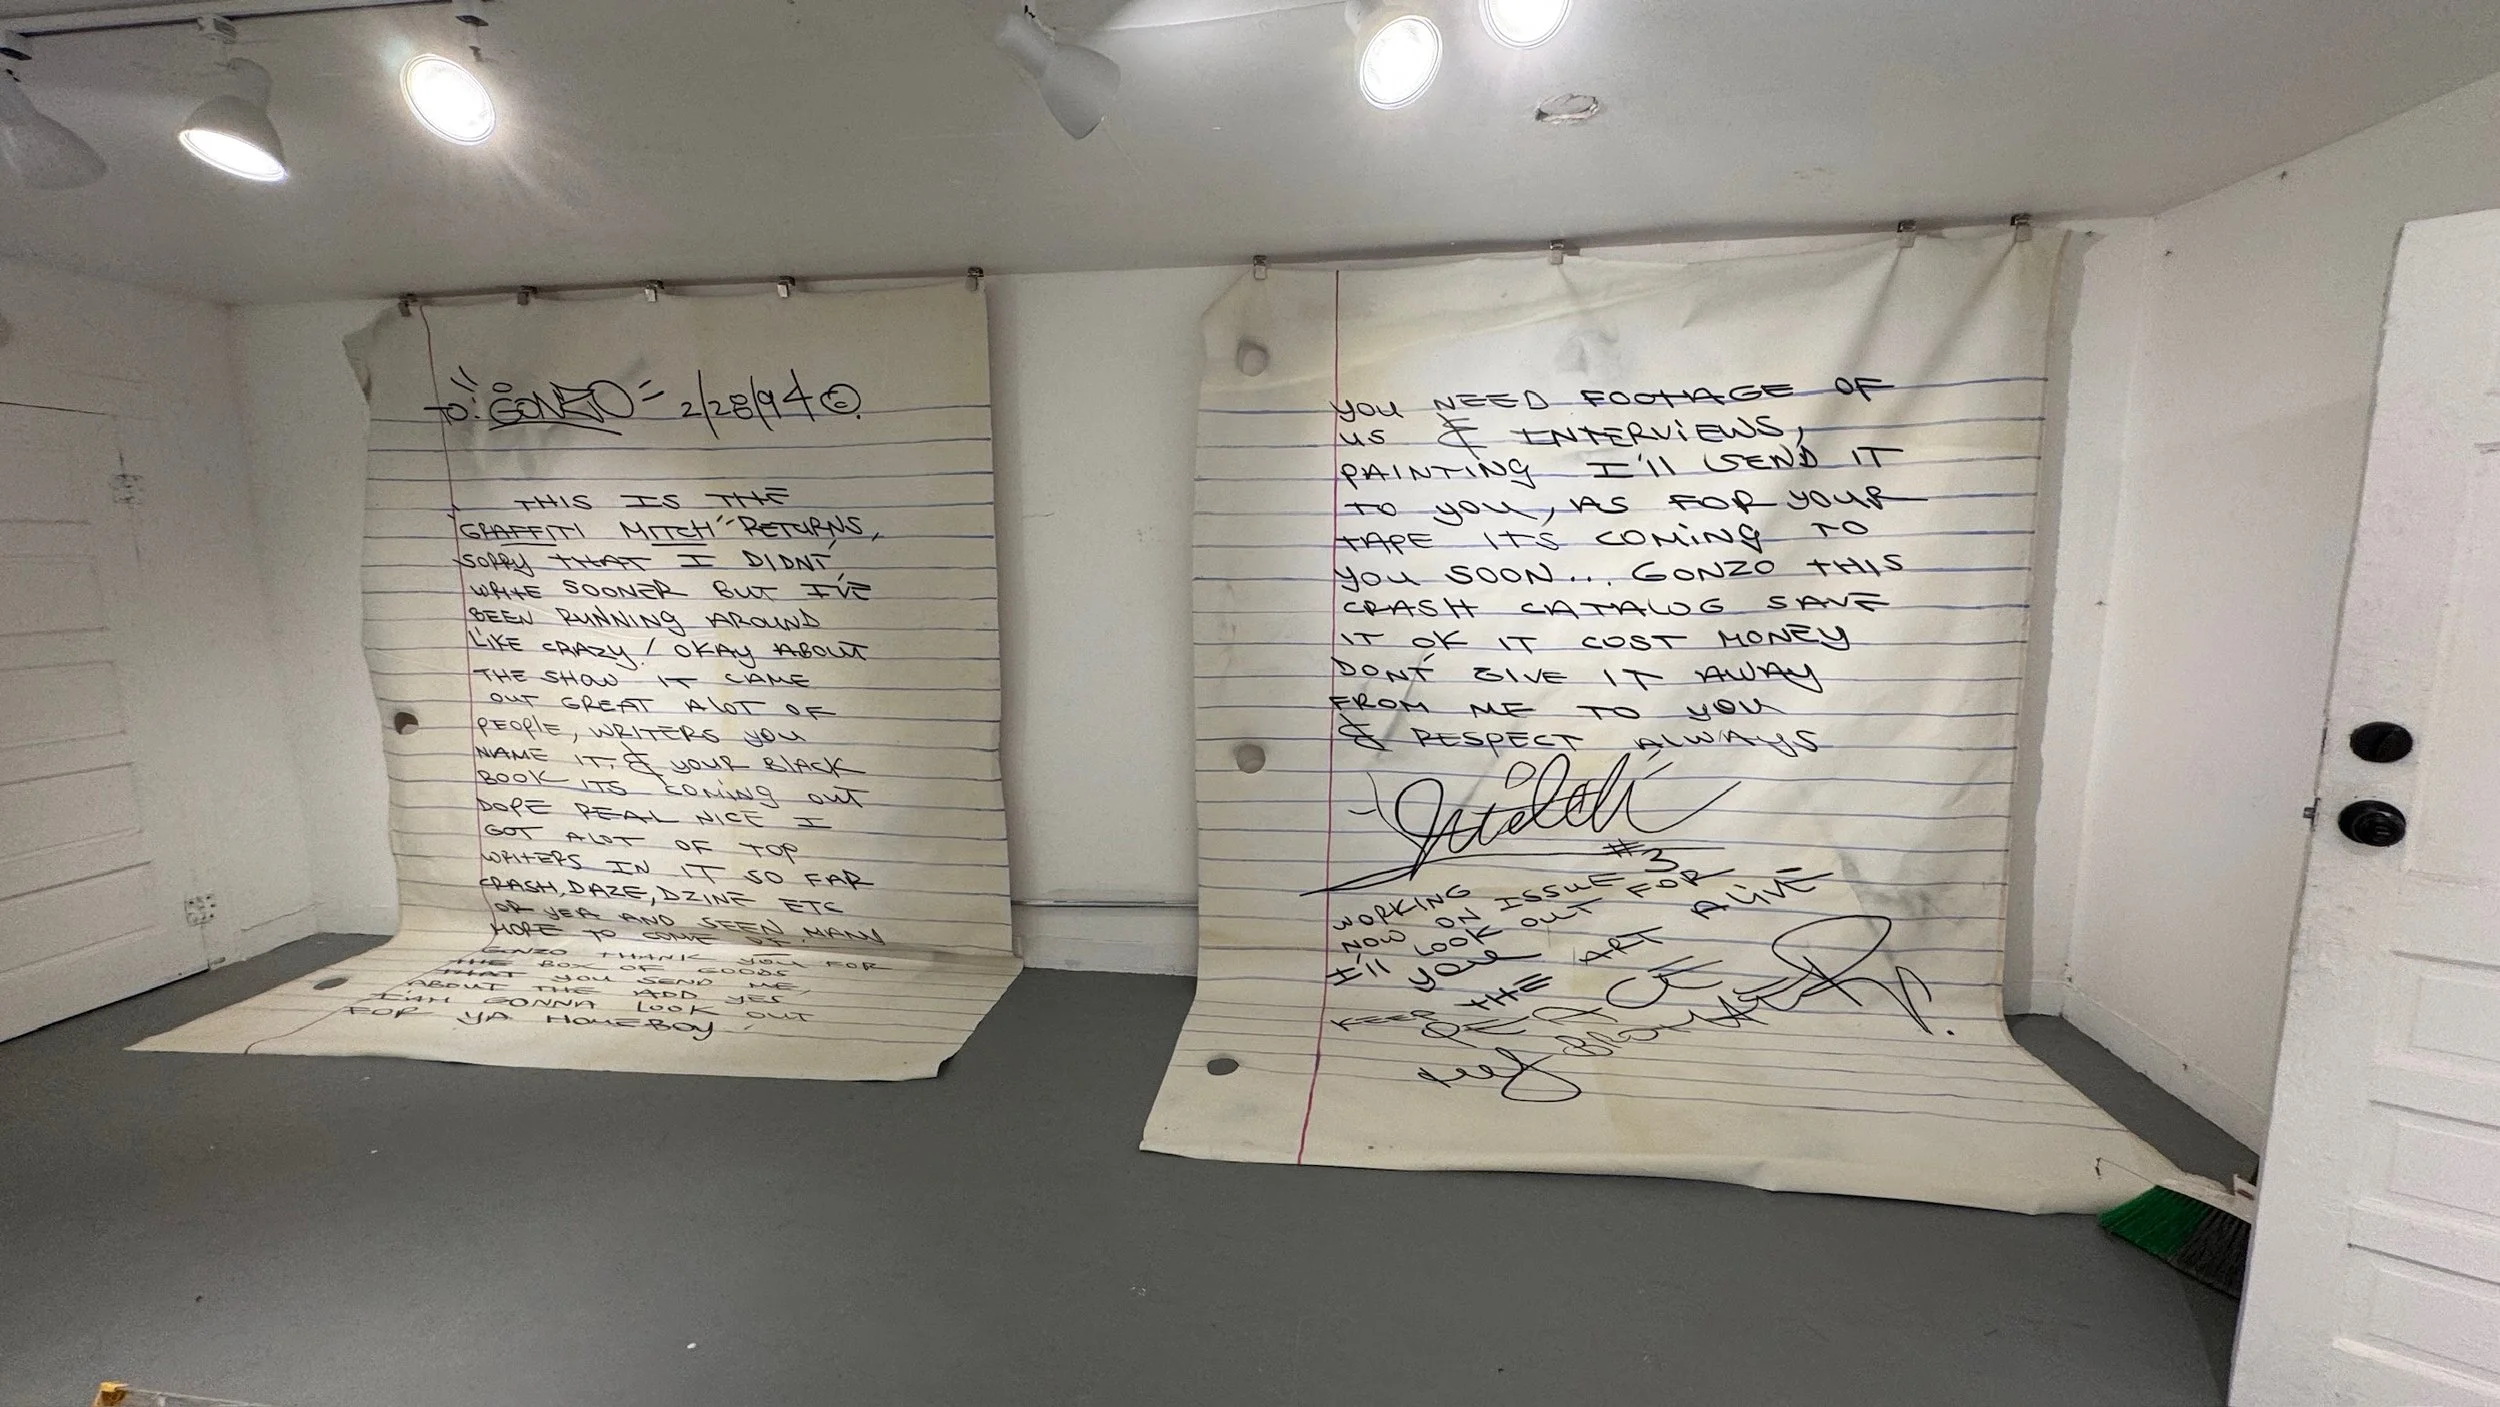 TO: "GONZO" 2/28/94 ©.
THIS IS THE
GRAFFITI MITCH" RETURNS,
SORRY THAT I DIDN'T
WRITE SOONER BUT I'VE
BEEN RUNNING AROUND
LIKE CRAZY! OKAY ABOUT
THE SHOW IT CAME
OUT GREAT ALOT OF
PEOPLE, WRITERS YOU
NAME IT, & YOUR BLACK
BOOK ITS COMING OUT
DOPE REAL NICE I
GOT ALOT OF TOP
WRITERS IN IT SO FAR
CRASH, DAZE, DZINE ETC
OR YEA AND SEEN MANY
MORE TO COME
GONZO THANK YOU FOR
THE BOX OF GOODS
THAT YOU SEND ME,
ABOUT THE ADD YES
I'AM GONNA LOOK OUT
FOR YA HOMEBOY
YOU NEED FOOTAGE OF
US & INTERVIEWS,
PAINTING I'll SEND IT
TO YOU, AS FOR YOUR
TAPE ITS COMING TO
YOU SOON... GONZO THIS
CRASH CATALOG SAVE
IT OK IT COST MONEY
DON'T GIVE IT AWAY
FROM ME TO YOU
& RESPECT ALWAYS
Mitch
WORKING ON ISSUE #3
NOW LOOK OUT FOR
I'll YOU
KEEP THE ART ALIVE
PEACE